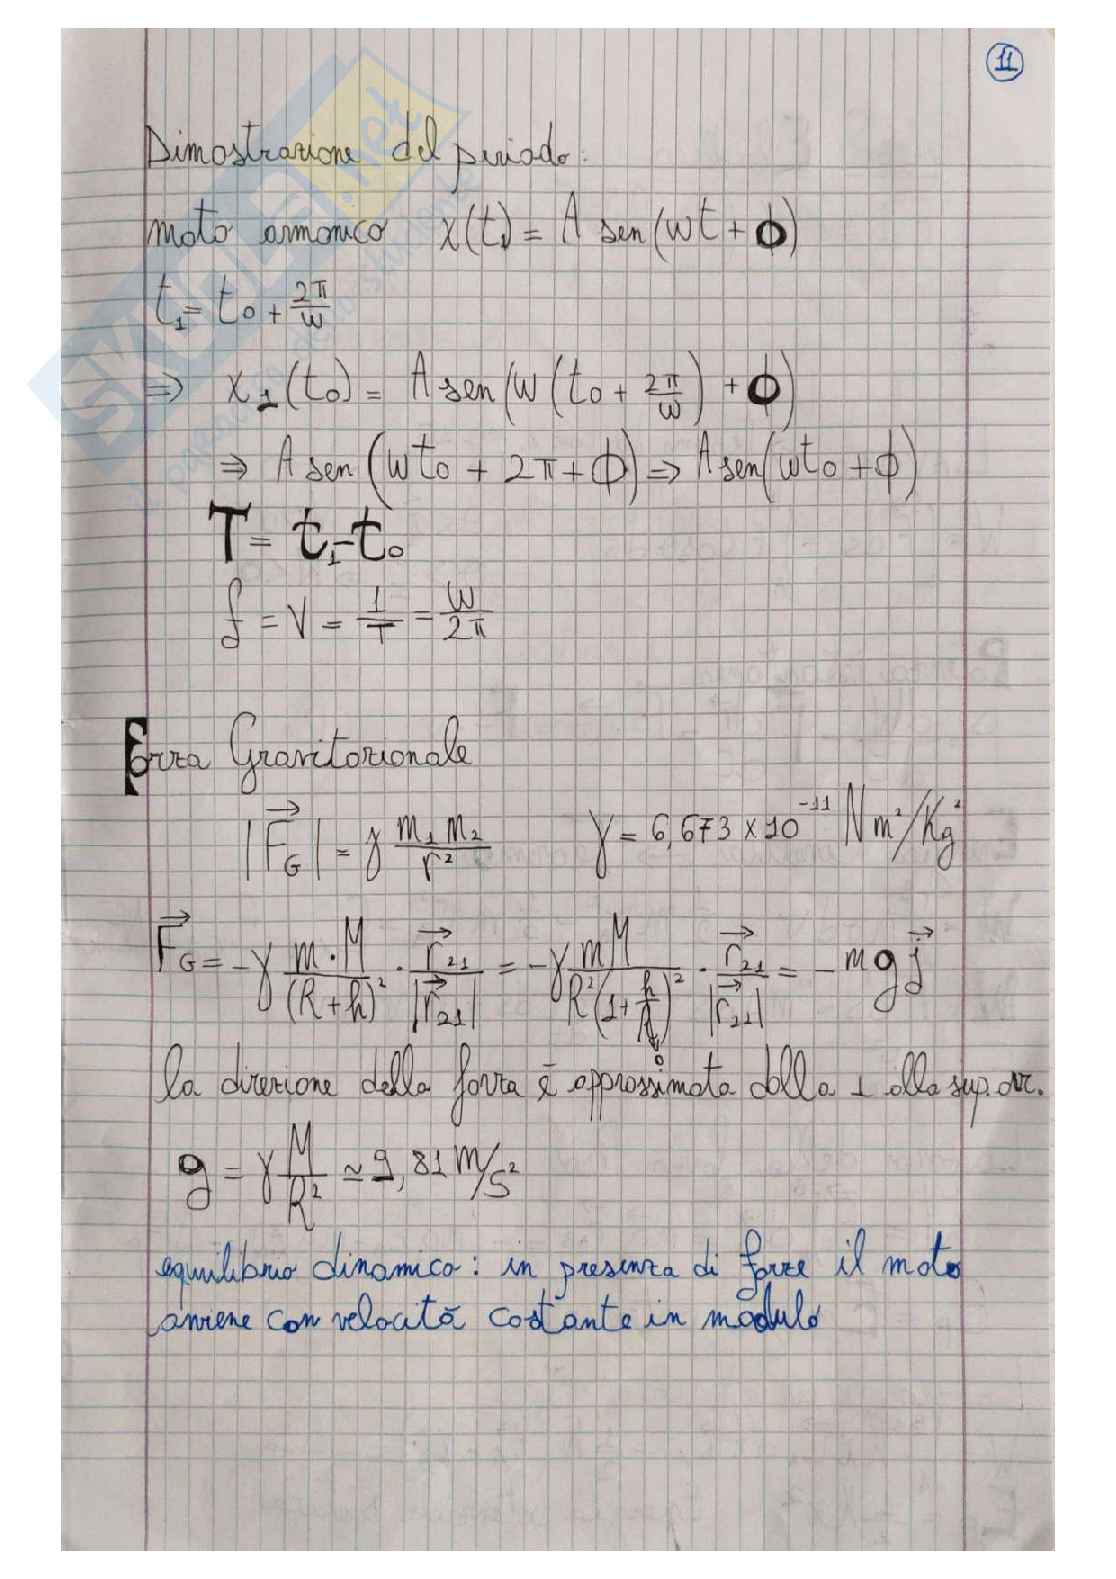 11
Dimostrazione del periodo:
moto armonico x(t) = A sen(ωt + ϕ)
t₁ = t₀ + 2π/ω
⇒ x₁(t₀) = A sen(ω(t₀ + 2π/ω) + ϕ)
⇒ A sen(ωt₀ + 2π + ϕ) ⇒ A sen(ωt₀ + ϕ)
T = t₁ - t₀
f = ν = 1/T = ω/2π
Forza Gravitazionale
|F⃗_G| = γ m₁ m₂ / r² γ = 6,673 × 10⁻¹¹ N m²/Kg²
F⃗_G = -γ m·M/(R+h)² · r⃗₂₁/|r⃗₂₁| = -γ mM/R²(1+h/R)² · r⃗₂₁/|r⃗₂₁| = -mg j⃗
↓ 0
la direzione della forza è approssimata dalla ⊥ alla sup. orr.
g = γ M/R² ≃ 9,81 m/s²
equilibrio dinamico: in presenza di forze il moto
avviene con velocità costante in modulo
SKUOLA.net